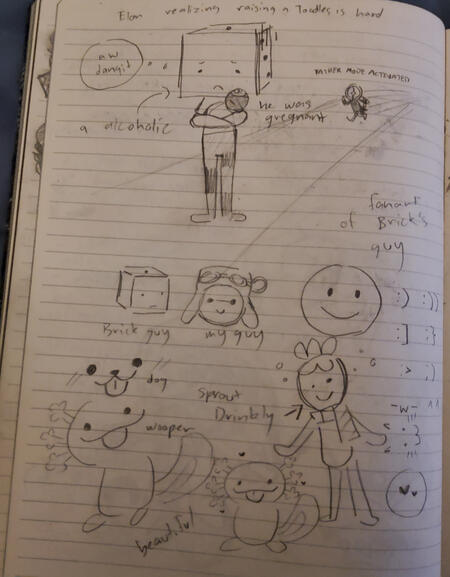 Elon realizing raising a Toodles is hard
aw
dangit
FATHER MODE ACTIVATED
a alcoholic
he was
gregnant
fanart
of Brick's
guy
:) :))
:] :}
:> ;)
Brick guy
my guy
dog
sprout
Drimbly
-w- ^^
wooper
beautiful